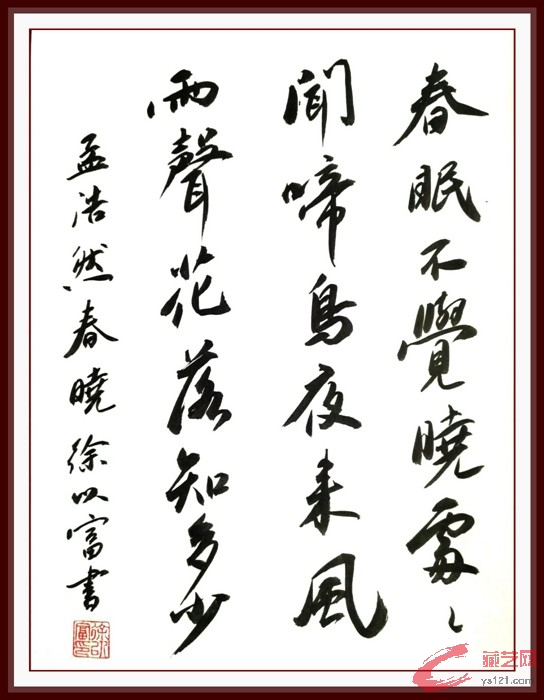 春眠不覺曉處〻
聞啼鳥夜来風
雨聲花落知多少
孟浩然春曉徐以富書
徐以富印
藏艺网
ys121.com